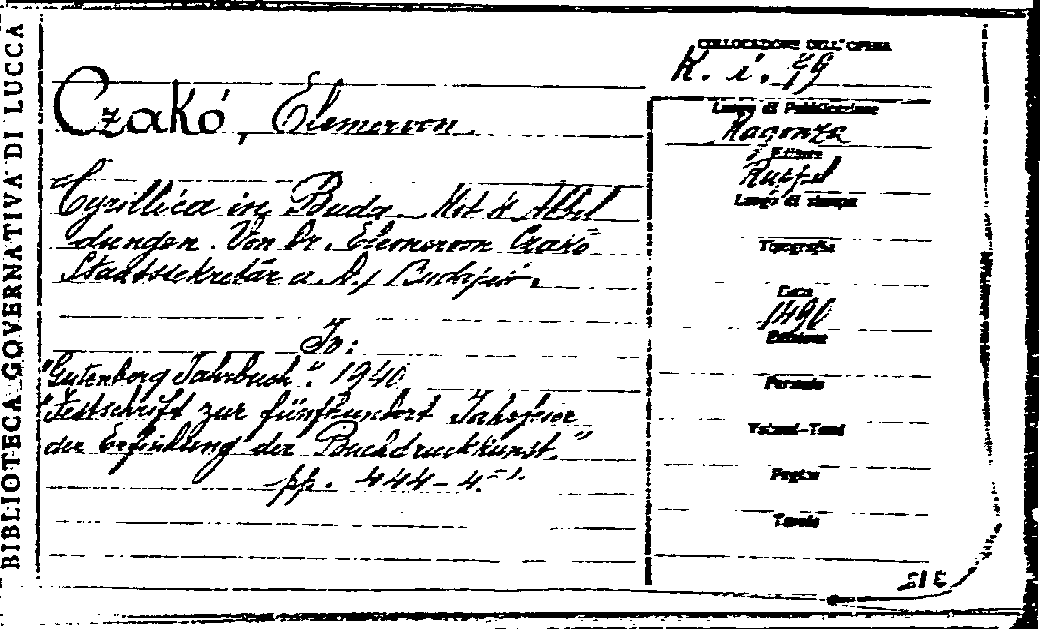 BIBLIOTECA GOVERNATIVA DI LUCCA
Czakó, Elemervon
Cyrillica in Buda. Mit 8 Abbil
dungen. Von Dr. Elemervon Czakó
Staatssekretär a. D.,
In:
"Gutenberg Jahrbuch". 1940
Festschrift zur fünfhundert Jahrfeier
der Erfindung der Buchdruckkunst."
pp. 444-4
COLLOCAZIONE DELL'OPERA
K. i. 19
Luogo di Pubblicazione
Magonza
Editore
Luogo di stampa
Tipografia
Data
Edizione
Formato
Volumi-Tomi
Pagine
Tavole